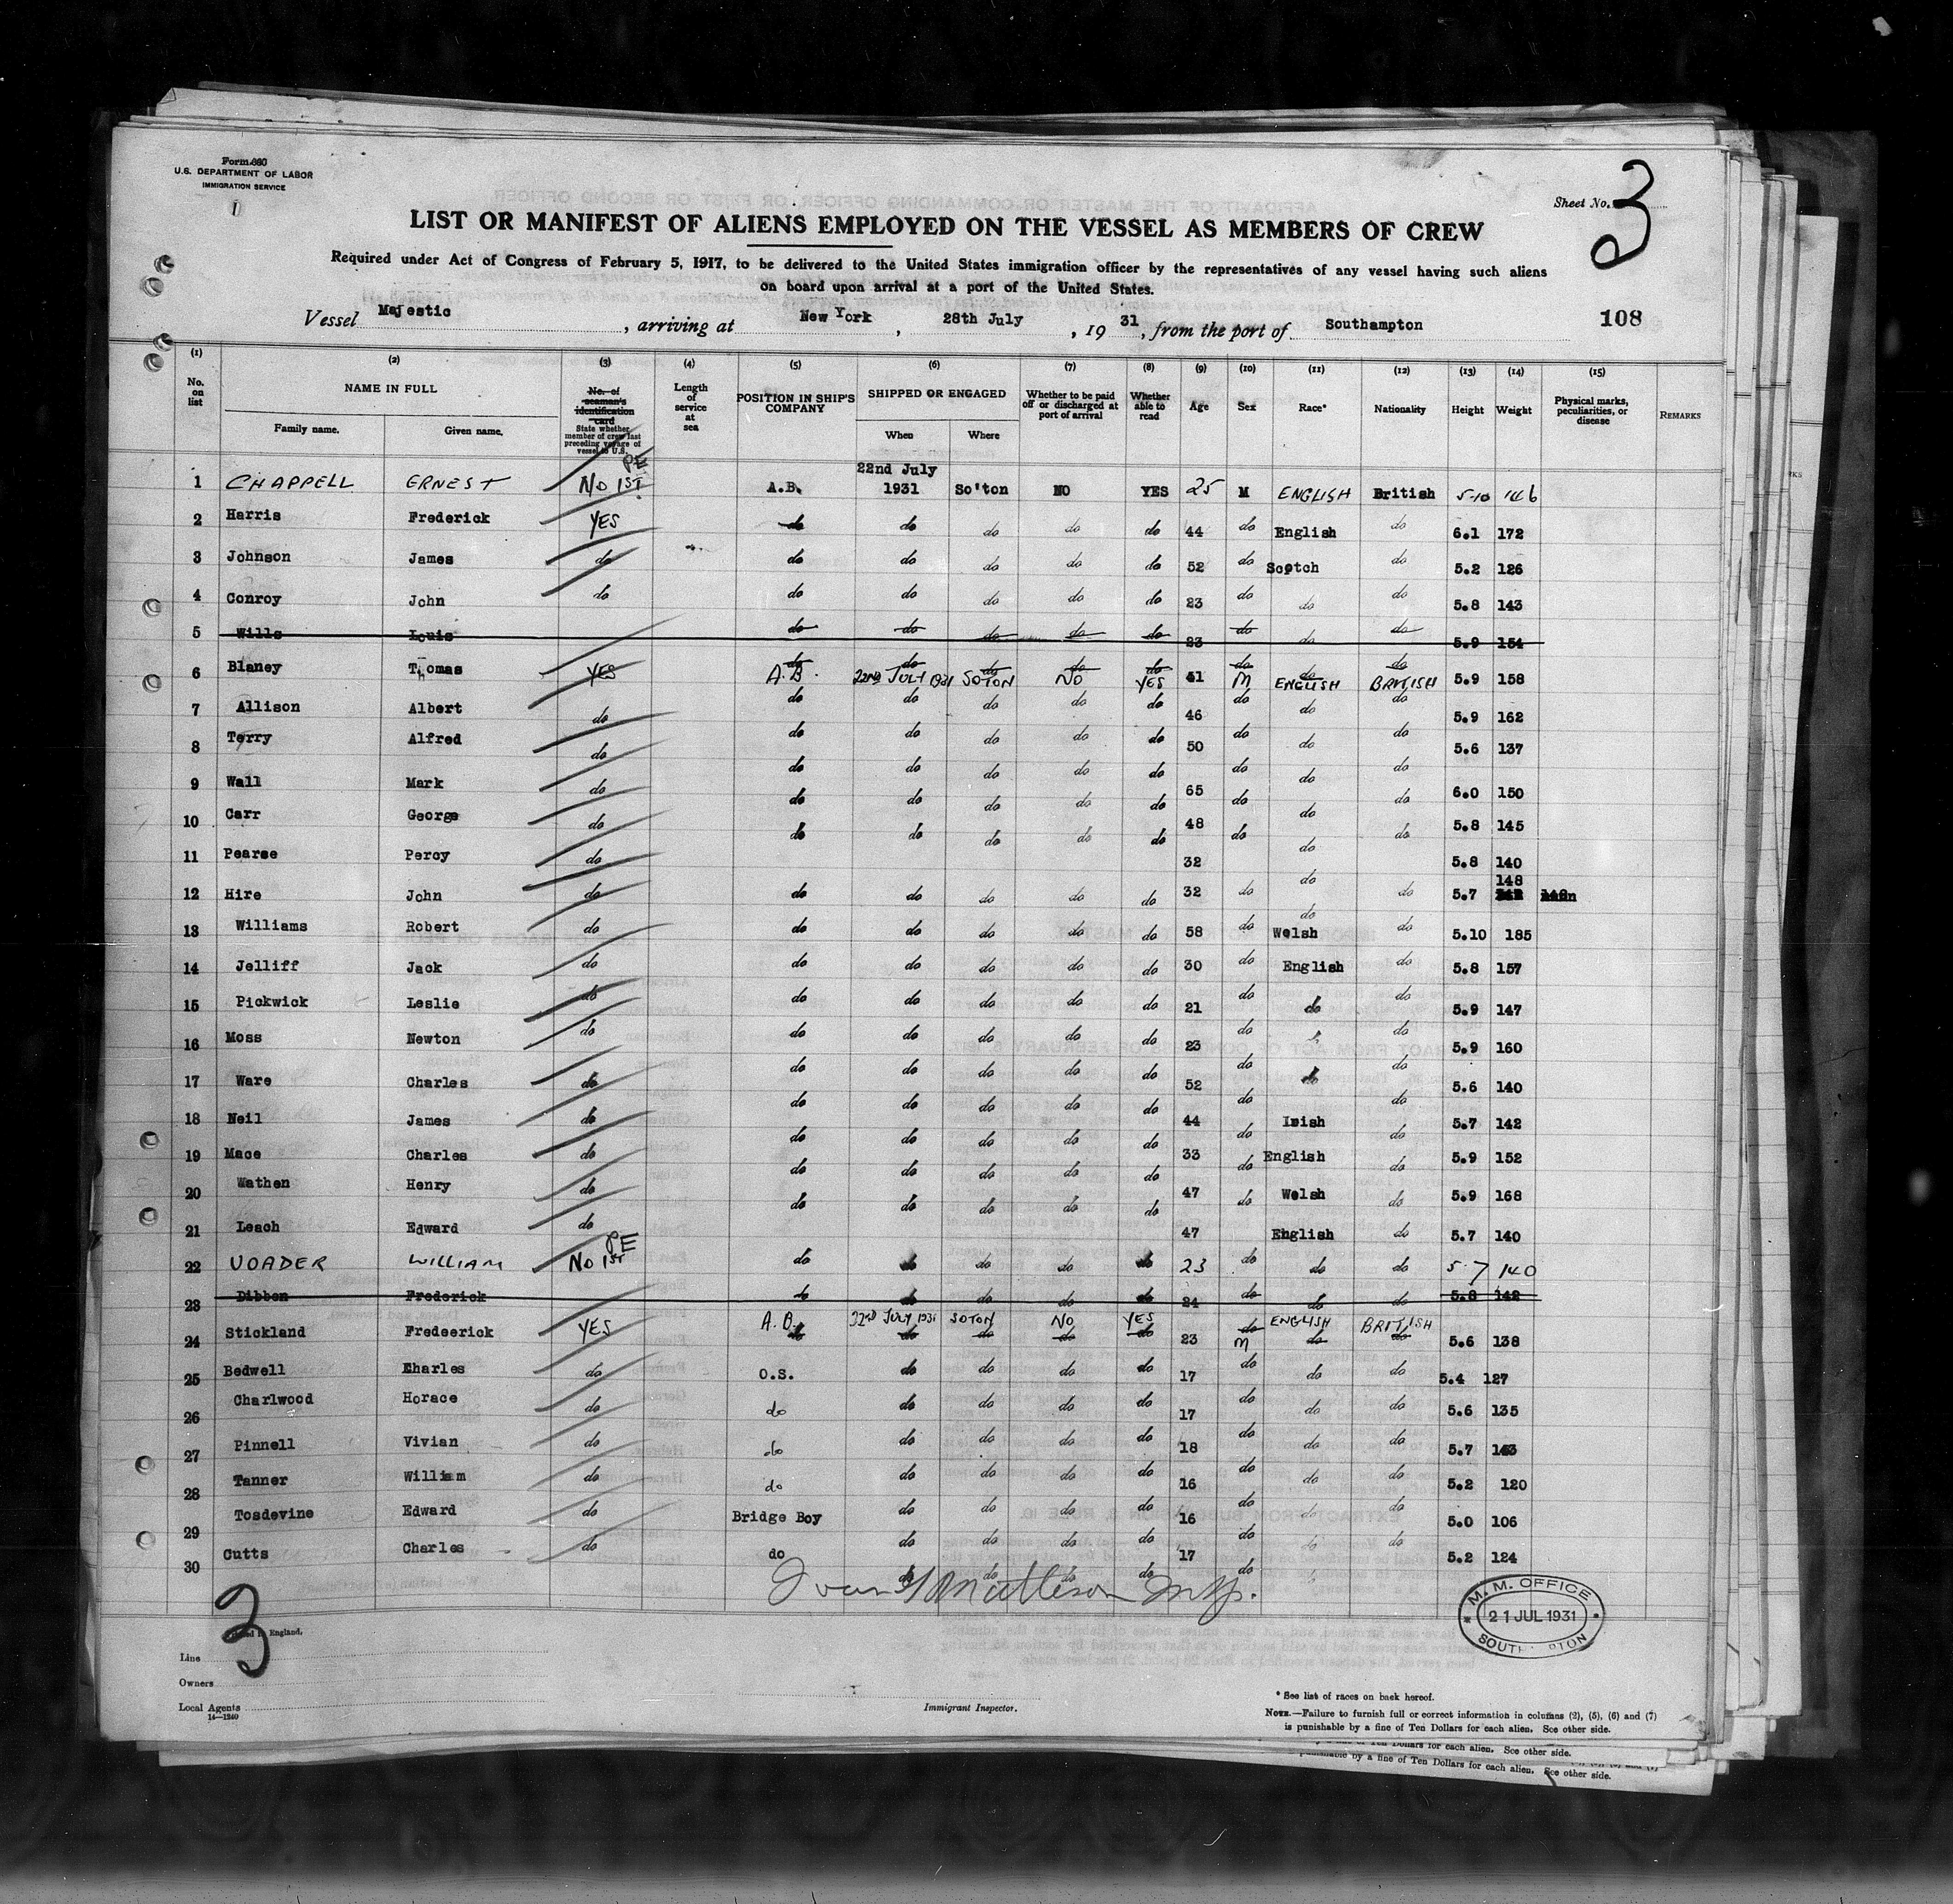 Form 680
U.S. DEPARTMENT OF LABOR
IMMIGRATION SERVICE
Sheet No. 3
LIST OR MANIFEST OF ALIENS EMPLOYED ON THE VESSEL AS MEMBERS OF CREW
Required under Act of Congress of February 5, 1917, to be delivered to the United States immigration officer by the representatives of any vessel having such aliens
on board upon arrival at a port of the United States.
Vessel Majestic, arriving at New York, 28th July, 1931, from the port of Southampton 108
(1) (2) (3) (4) (5) (6) (7) (8) (9) (10) (11) (12) (13) (14) (15)
No. on list NAME IN FULL Family name. Given name. No. of seaman's identification card State whether member of crew last preceding voyage of vessel to U.S. Length of service at sea POSITION IN SHIP'S COMPANY SHIPPED OR ENGAGED When Where Whether to be paid off or discharged at port of arrival Whether able to read Age Sex Race* Nationality Height Weight Physical marks, peculiarities, or disease REMARKS
1 CHAPPELL ERNEST NO 1ST PE A.B. 22nd July 1931 So'ton NO YES 25 M ENGLISH British 5-10 146
2 Harris Frederick YES do do do do do 44 do English do 6.1 172
3 Johnson James do do do do do do 52 do Scotch do 5.2 126
4 Conroy John do do do do do do 23 do do do 5.8 143
5 Wills Louis do do do do do 23 do do do 5.9 154
6 Blaney Thomas YES A.B. 22ND JULY 1931 SOTON NO YES 41 M ENGLISH BRITISH 5.9 158
7 Allison Albert do do do do do do 46 do do do 5.9 162
8 Terry Alfred do do do do do do 50 do do do 5.6 137
9 Wall Mark do do do do do do 65 do do do 6.0 150
10 Carr George do do do do do do 48 do do do 5.8 145
11 Pearse Percy do do do do do do 32 do do do 5.8 140
12 Hire John do do do do do do 32 do do do 5.7 148
13 Williams Robert do do do do do do 58 do Welsh do 5.10 185
14 Jelliff Jack do do do do do do 30 do English do 5.8 157
15 Pickwick Leslie do do do do do do 21 do do do 5.9 147
16 Moss Newton do do do do do do 23 do do 5.9 160
17 Ware Charles do do do do do do 52 do do do 5.6 140
18 Neil James do do do do do do 44 do Irish do 5.7 142
19 Mace Charles do do do do do do 33 do English do 5.9 152
20 Wathen Henry do do do do do do 47 do Welsh do 5.9 168
21 Leach Edward do do do do do do 47 English do 5.7 140
22 VOADER WILLIAM NO 1ST PE do do do do do 23 do do do 5.7 140
23 Dibben Frederick do do do do do 24 do do do 5.8 142
24 Stickland Fredeerick YES A.B. 22ND JULY 1931 SOTON NO YES 23 M ENGLISH BRITISH 5.6 138
25 Bedwell Charles do O.S. do do do do 17 do do do 5.4 127
26 Charlwood Horace do do do do do do 17 do do do 5.6 135
27 Pinnell Vivian do do do do do do 18 do do do 5.7 143
28 Tanner William do do do do do do 16 do do do 5.2 120
29 Tosdevine Edward do Bridge Boy do do do do 16 do do do 5.0 106
30 Cutts Charles do do do do do do 17 do do do 5.2 124
do do do do do
Mattison Insp.
M. M. OFFICE
21 JUL 1931
3
Printed in England.
Line
Owners
Local Agents
14—1240
Immigrant Inspector.
* See list of races on back hereof.
NOTE.—Failure to furnish full or correct information in columns (2), (5), (6) and (7)
is punishable by a fine of Ten Dollars for each alien. See other side.
by a fine of Ten Dollars for each alien. See other side.
punishable by a fine of Ten Dollars for each alien. See other side.